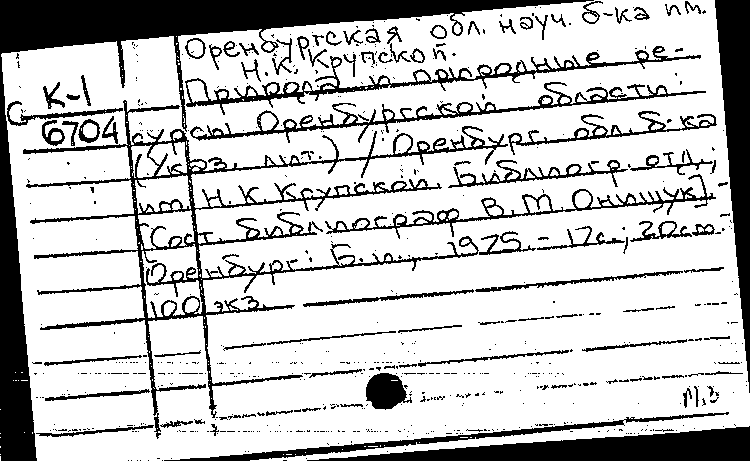 Оренбургская обл. науч. б-ка им.
Н.К. Крупской.
К-1
Природа и природные ре-
С
6704
сурсы Оренбургской области:
(Указ. лит.) / Оренбург. обл. б-ка
им. Н.К. Крупской. Библиогр. отд.;
[Сост. библиограф В.М. Онищук].-
Оренбург: Б.и., 1975.- 17с.; 20см.-
100 экз.
М.З